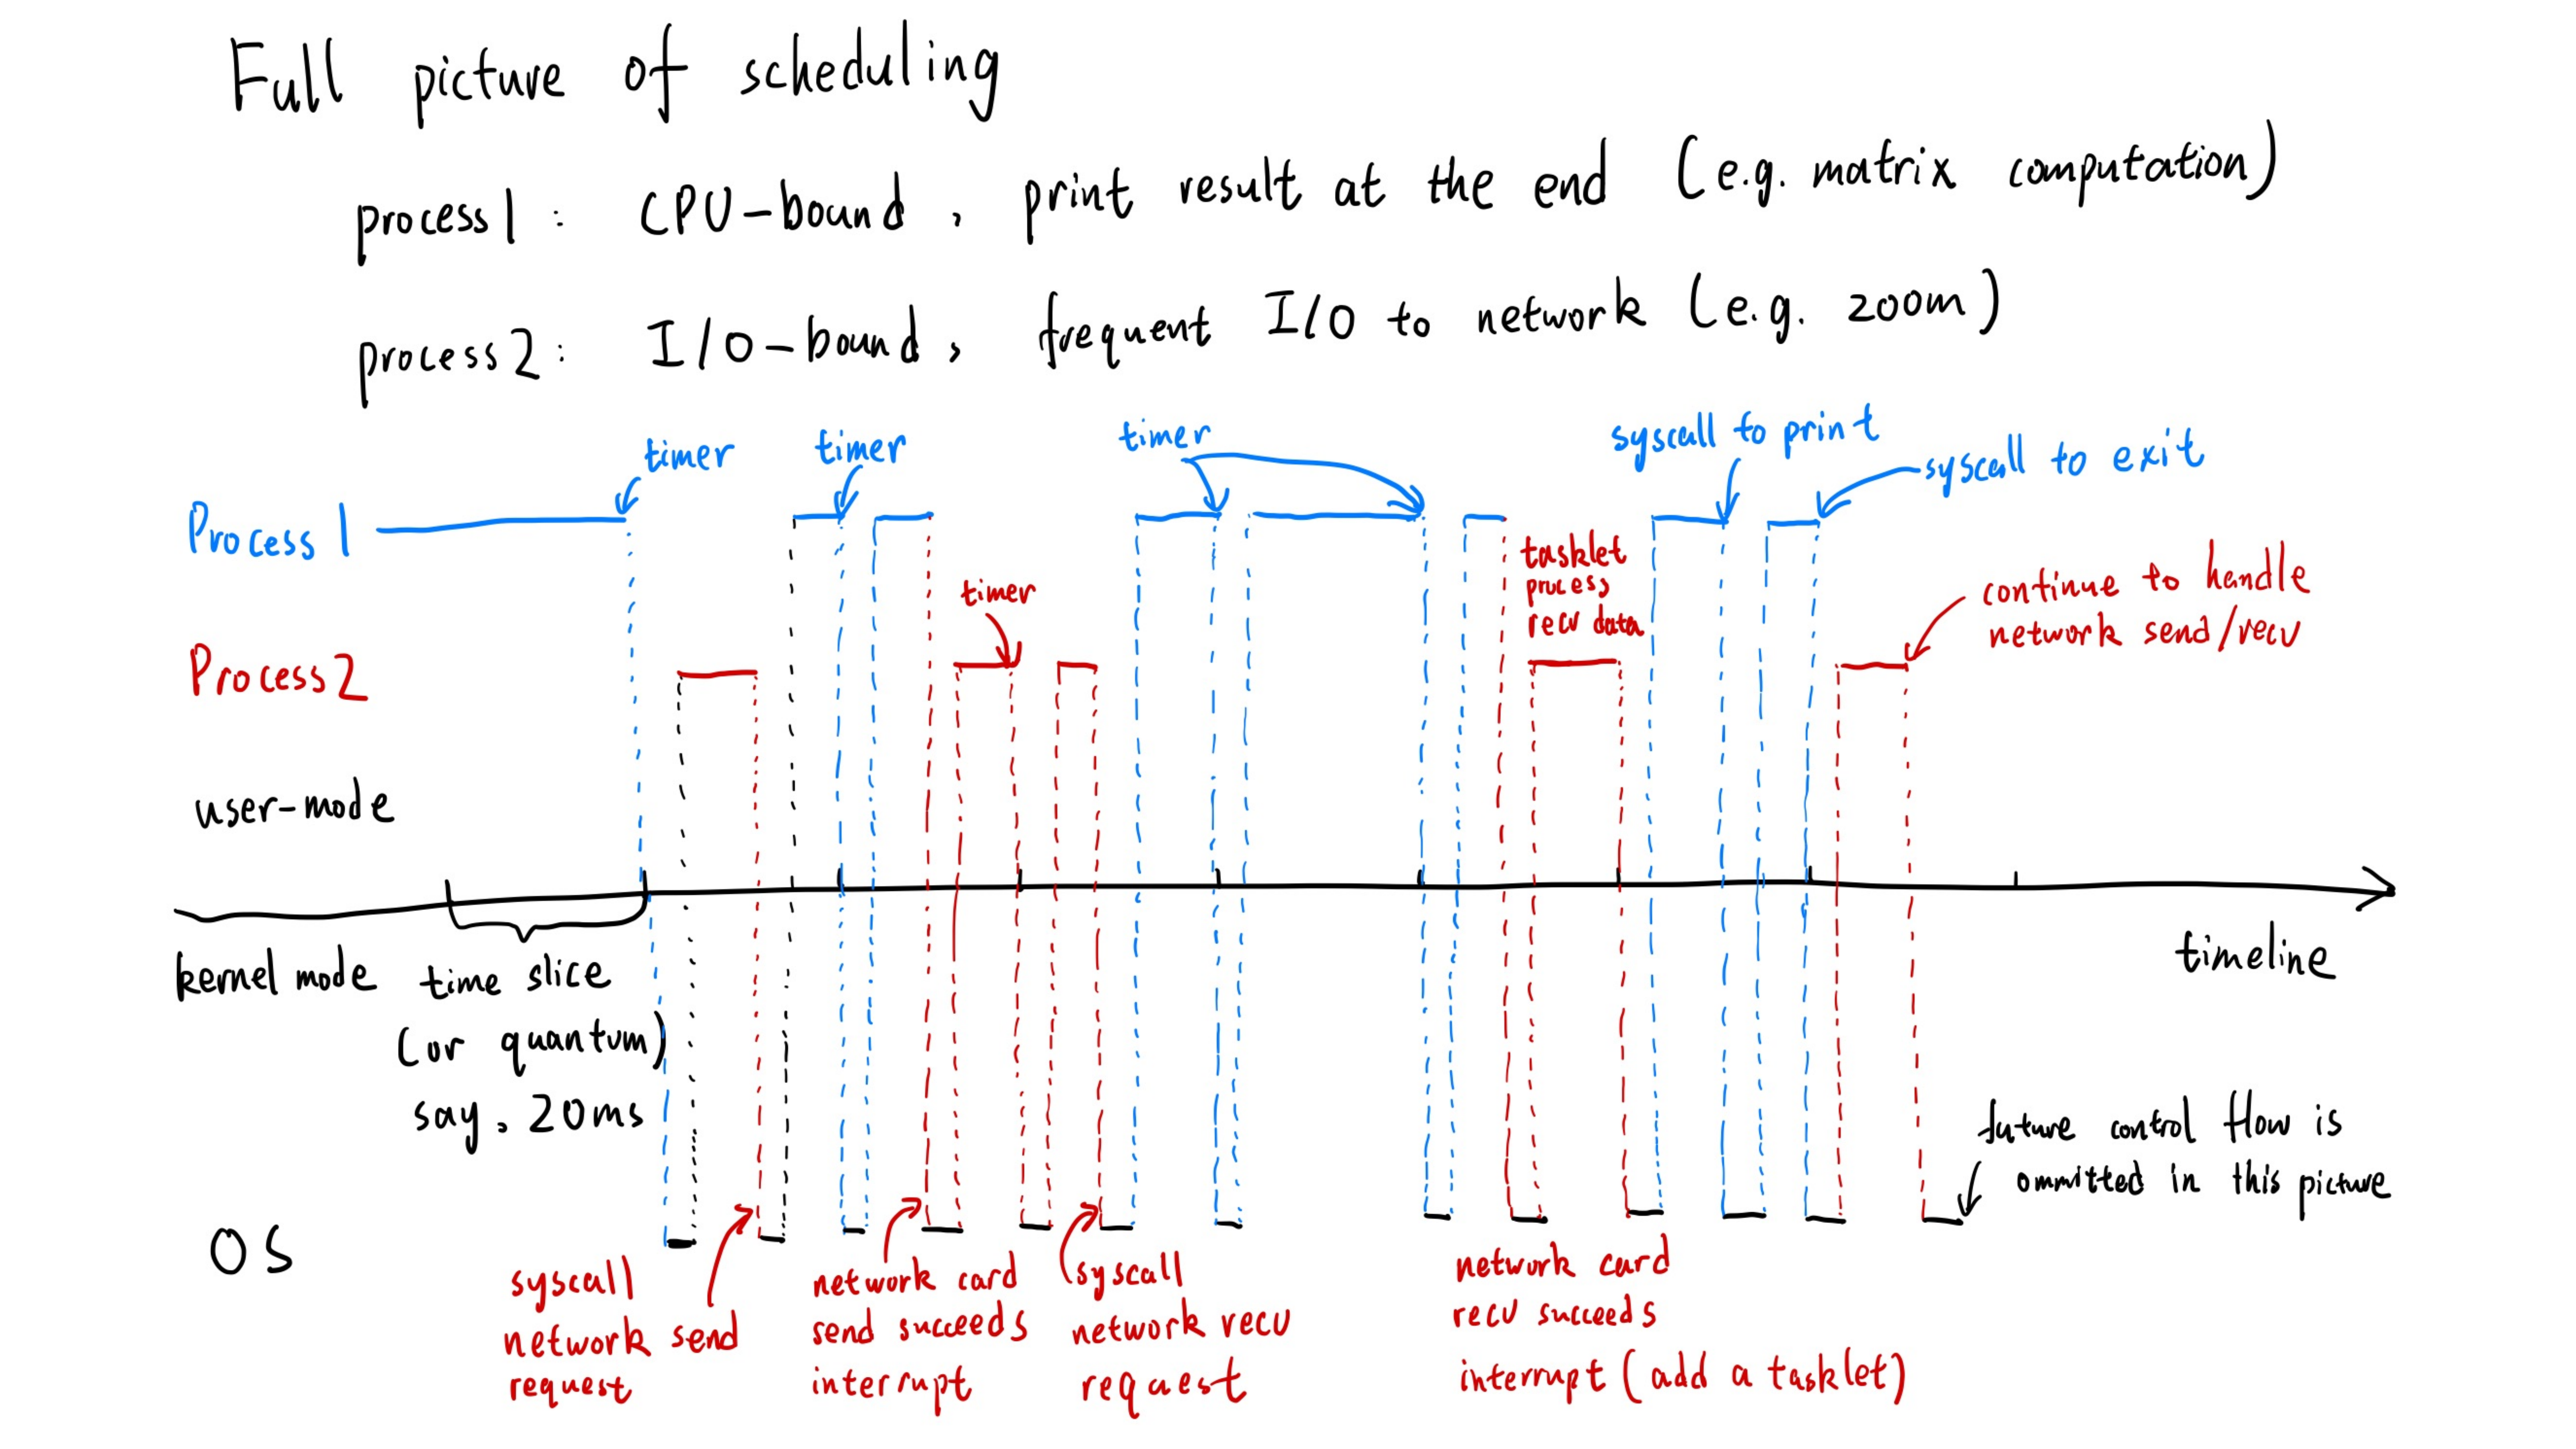 Full picture of scheduling
process 1 : CPU-bound, print result at the end (e.g. matrix computation)
process 2 : I/O-bound, frequent I/O to network (e.g. zoom)
timer
timer
timer
syscall to print
syscall to exit
Process 1
tasklet
process
recv data
timer
continue to handle
network send/recv
Process 2
user-mode
kernel mode
time slice
(or quantum)
say, 20ms
timeline
future control flow is
ommitted in this picture
OS
syscall
network send
request
network card
send succeeds
interrupt
syscall
network recv
request
network card
recv succeeds
interrupt (add a tasklet)